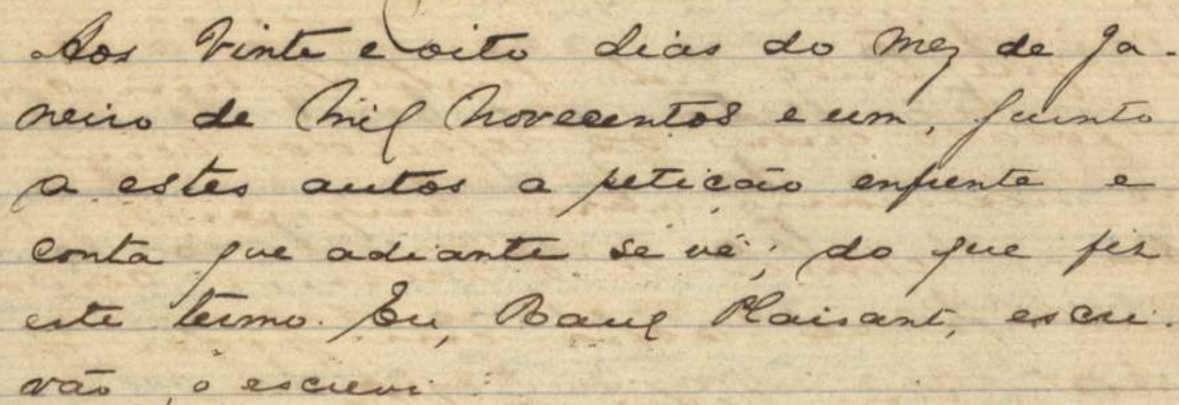 Aos vinte e oito dias do mez de Ja-
neiro de mil novecentos e um, junto
a estes autos a petição enfrente e
conta que adiante se vê; do que fiz
este termo. Eu, Raul Plaisant, escri-
vão, o escrevi